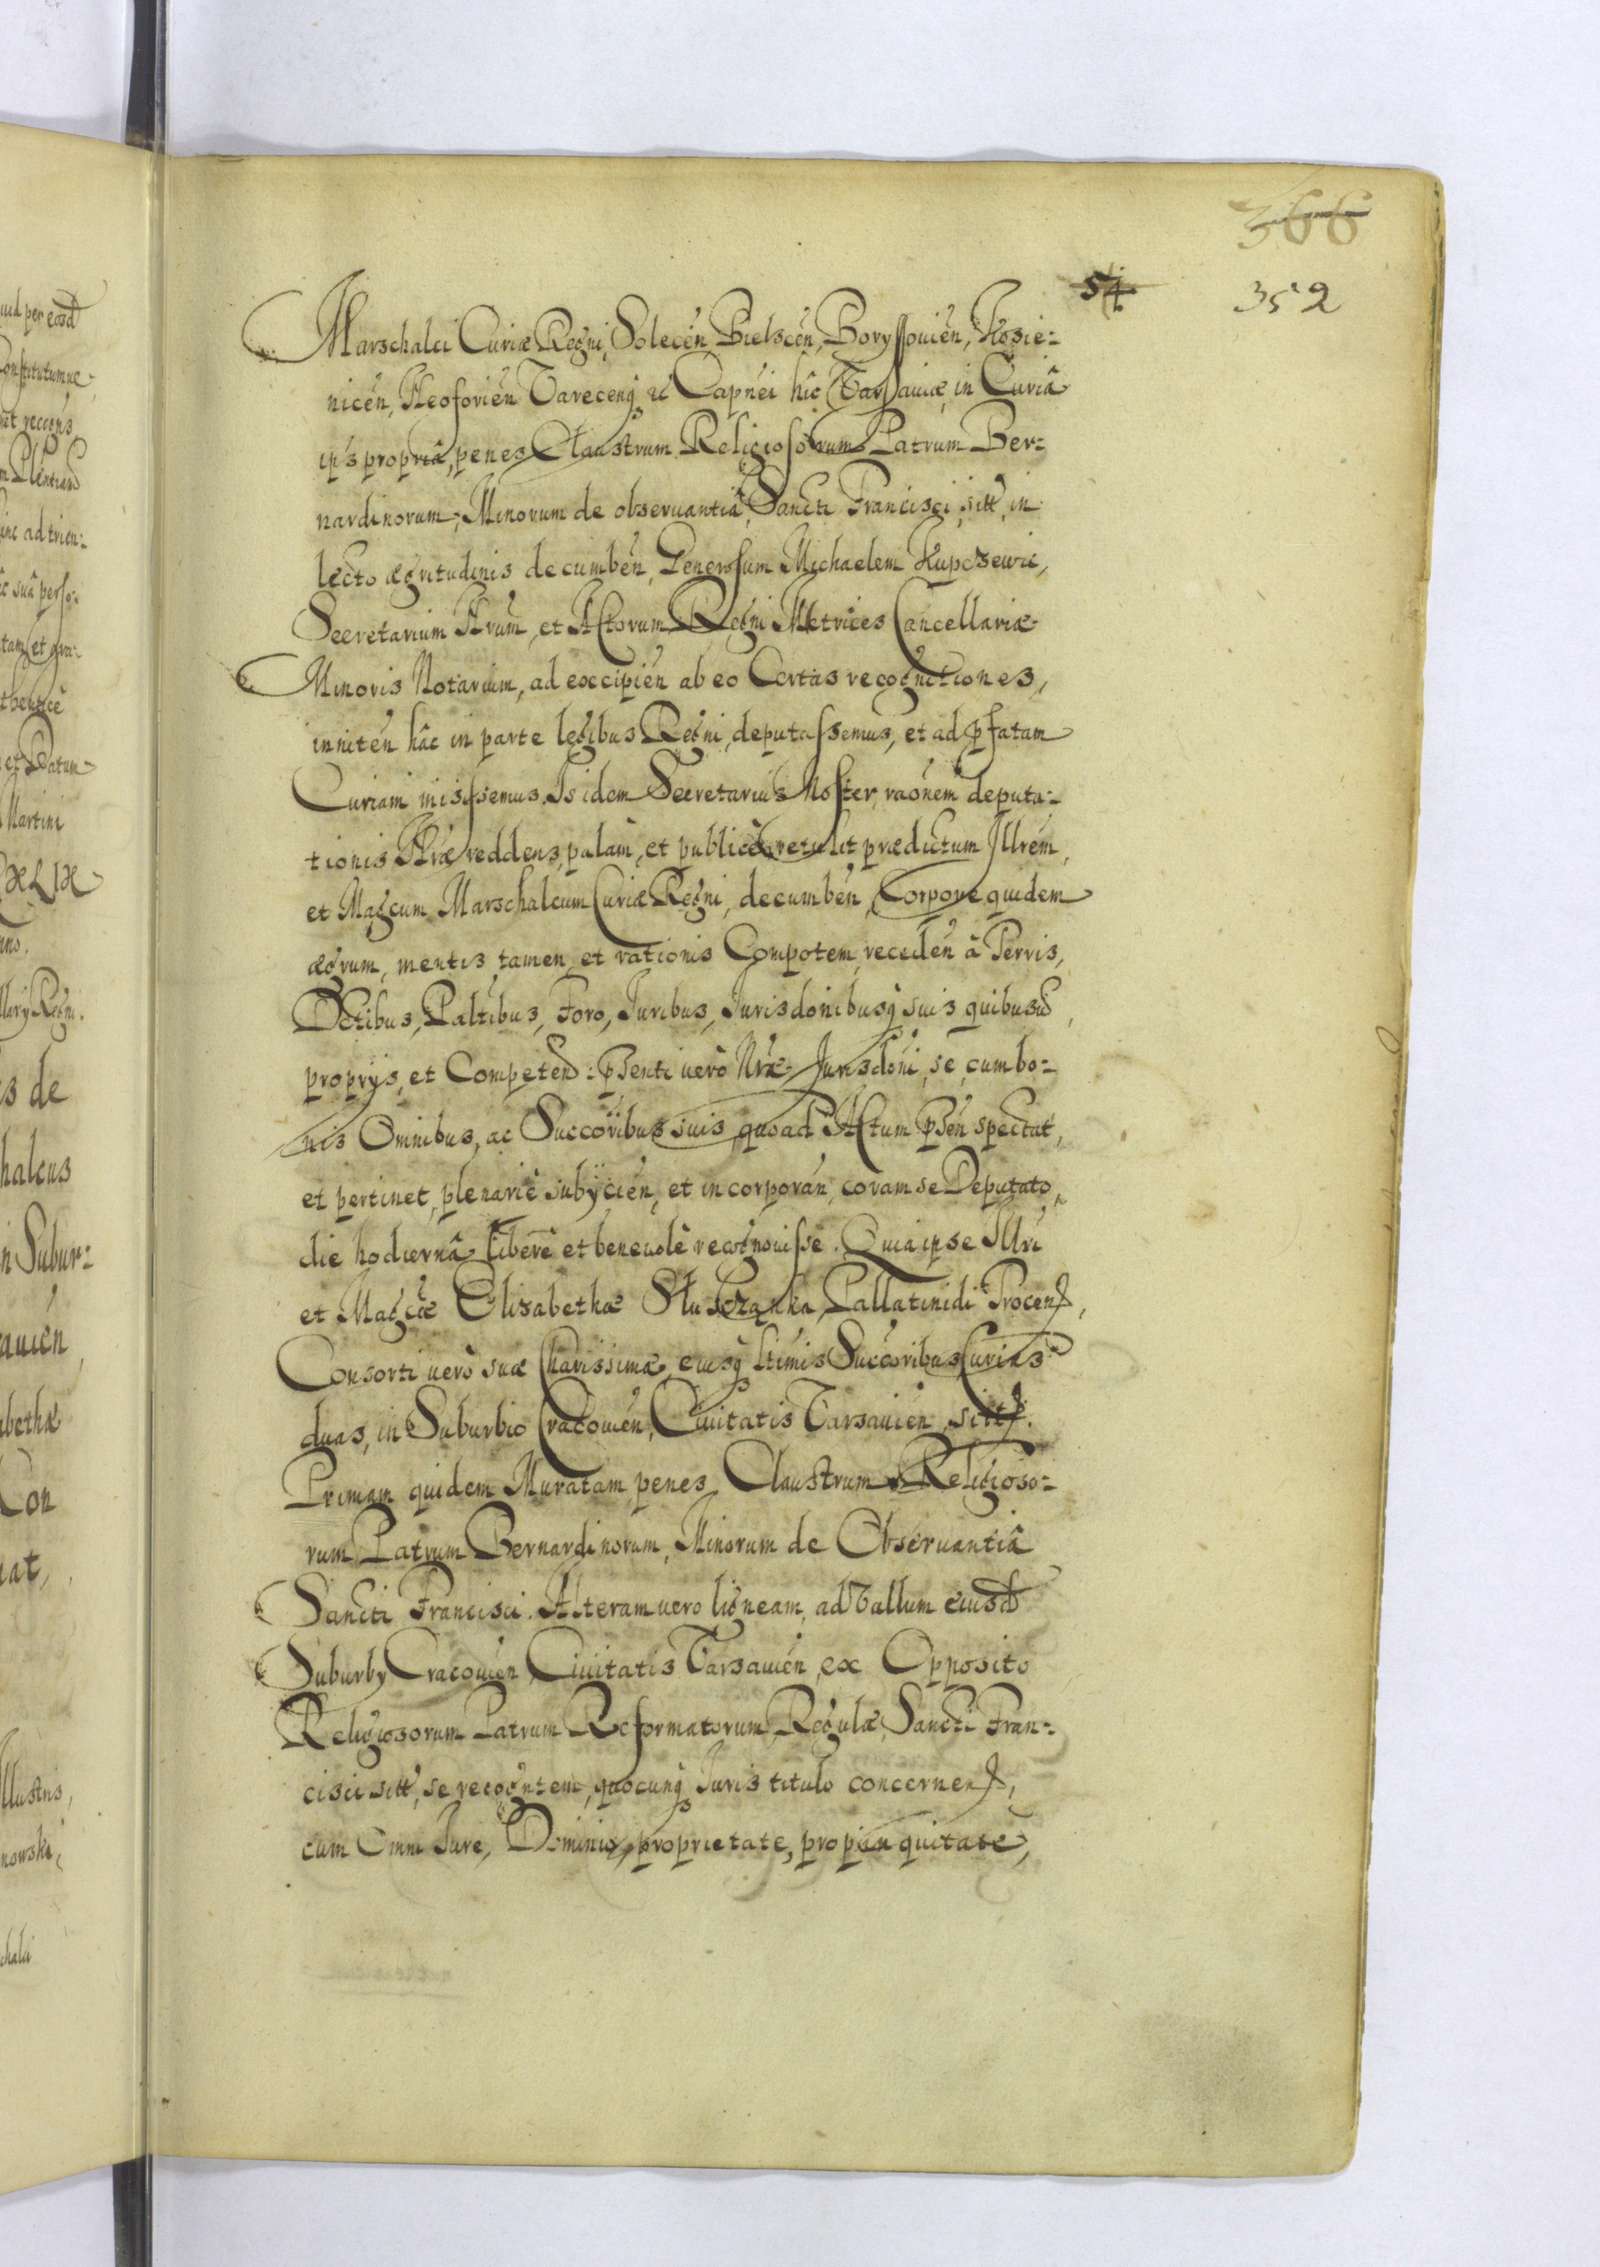 366
54
352
Marschalci Curiæ Regni, Solecen̄ Bielscen̄, Boryssovien̄, Kosie:
nicen̄, Neoforien̄ Varecen̄q̨ &c̄ Capnei hîc Varsaviæ, in Curiâ
ip̄s propriâ, penes Claustrum Religiosorum Patrum Ber:
nardinorum, Minorum de observantiâ, Sancti Francisci, sitt̄, in
lecto ægritudinis decumben̄, Generosum Michaelem Kupczewic,
Secretarium Nr̄um, et Actorum Regni Metrices Cancellariæ
Minoris Notarium, ad excipien̄ ab eo Certas recognitiones,
inniten̄ hâc in parte legibus Regni, deputassemus, et ad p̄fatam
Curiam misissemus. Is idem Secretarius Noster, rāonem deputa:
tionis Nr̄æ reddens, palàm, et publicè retulit prædictum Illrēm,
et Magcum Marschalcum Curiæ Regni, decumben̄, Corpore quidem
ægrum, mentis tamen, et rationis Compotem, receden̄ à Terris,
Dctibus, Paltibus, Foro, Juribus, Jurisdonibusq̨ suis quibusvis,
proprijs, et Competen̄: p̄senti verò Nr̄æ Jurisdōni, se, cum bo:
nis Omnibus, ac Succōribus suis, quoad Actum p̄sen̄ spectat,
et pertinet, plenariè subijcien̄, et incorporan̄, coram se Deputato,
die hodiernâ liberè et benevolè recognovisse. Quia ipse Illri
et Magcæ Elisabethæ Słuszanka, Pallatinidi Trocen̄,
Consorti verò suæ Charissimæ, eiusq̨ ltimis Succoribus Curias
duas, in Suburbio Cracovien̄, Civitatis Varsavien̄, sitt̄.
Primam quidem Muratam, penes Claustrum Religioso:
rum Patrum Bernardinorum, Minorum de Observantiâ
Sancti Francisci. Alteram vero ligneam, ad Vallum eiusd̄
Suburbij Cracovien̄, Civitatis Varsavien̄, ex Opposito
Religiosorum Patrum Reformatorum, Regulæ, Sancti Fran:
cisci sitt̄, se recogntem, quocunq̨ Juris titulo concernen̄,
cum Omni Jure, Dominio, proprietate, propinquitate,